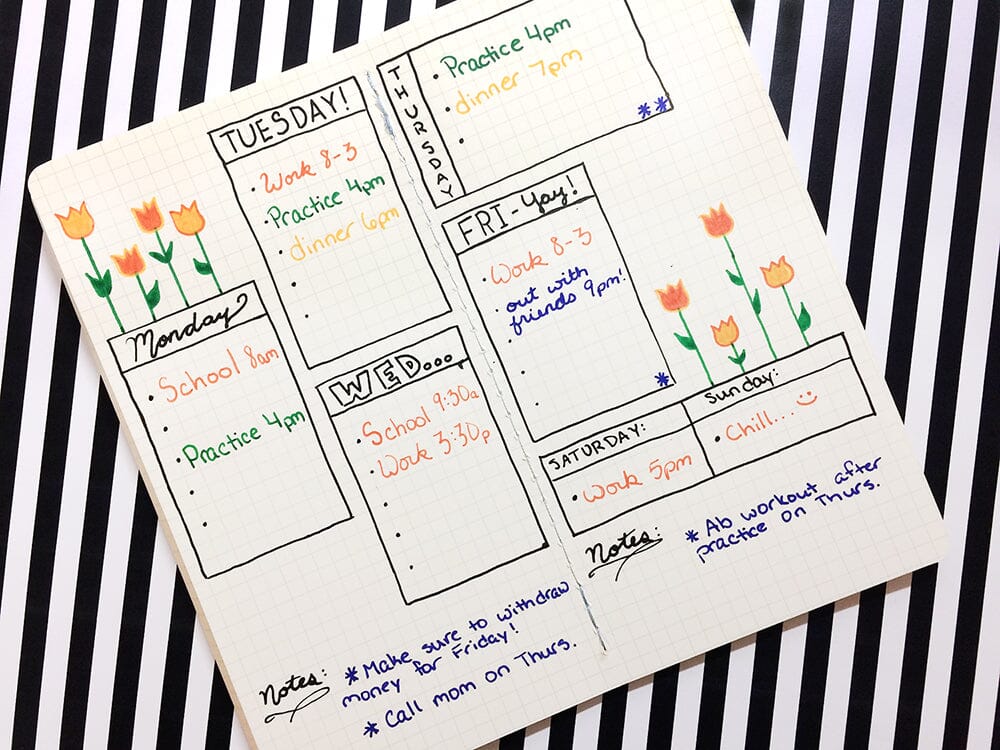 Monday
School 8am
Practice 4pm
TUESDAY!
Work 8-3
Practice 4pm
dinner 6pm
WED...
School 9:30a
Work 3:30p
Notes:
*Make sure to withdraw
money for Friday!
*Call mom on Thurs.
THURSDAY
Practice 4pm
dinner 7pm
**
FRI-Yay!
Work 8-3
out with
friends 9pm!
*
SATURDAY:
Work 5pm
Sunday:
Chill...
Notes:
*Ab workout after
practice on Thurs.